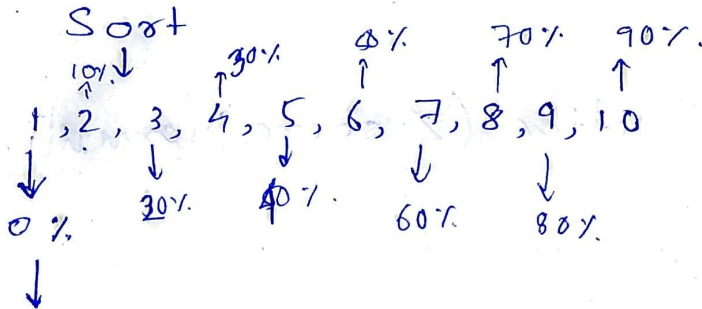 Sort
10% 30% 70% 90%.
1, 2, 3, 4, 5, 6, 7, 8, 9, 10
0 % 60% 80%.